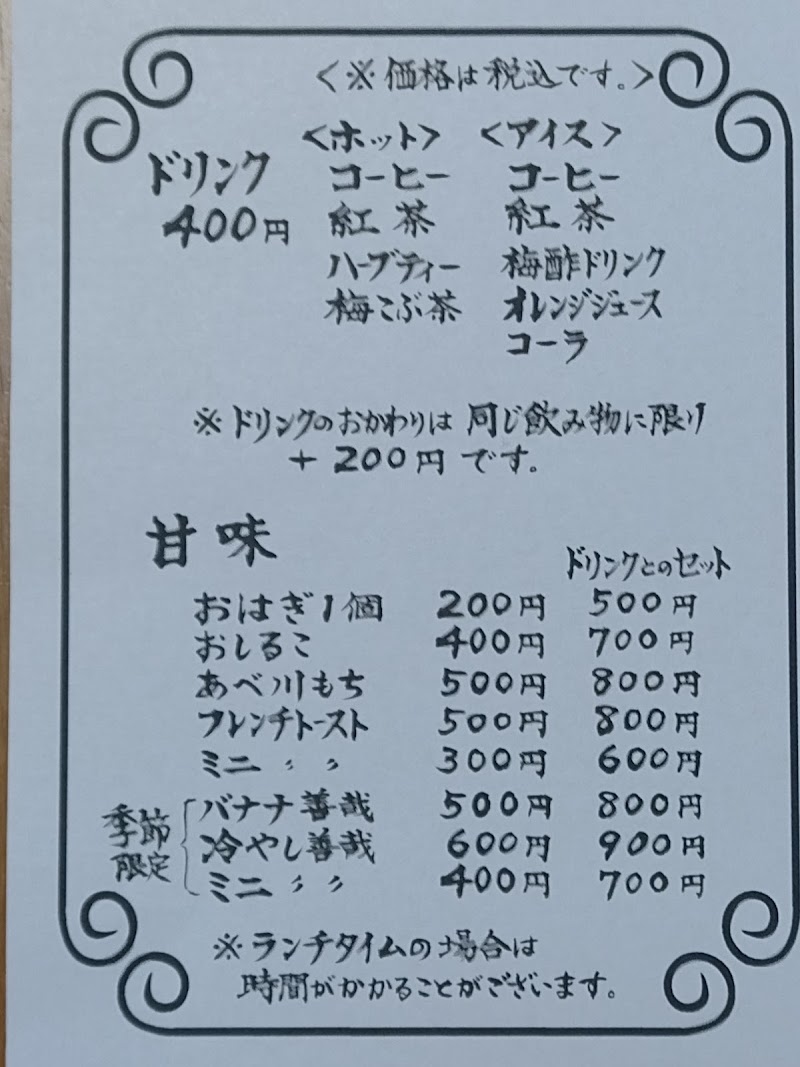 <※価格は税込です。>
ドリンク
400円
<ホット>
コーヒー
紅茶
ハーブティー
梅こぶ茶
<アイス>
コーヒー
紅茶
梅酢ドリンク
オレンジジュース
コーラ
※ドリンクのおかわりは同じ飲み物に限り
+200円です。
甘味
ドリンクとのセット
おはぎ1個 200円 500円
おしるこ 400円 700円
あべ川もち 500円 800円
フレンチトースト 500円 800円
ミニ 〃 〃 300円 600円
季節
限定
バナナ善哉 500円 800円
冷やし善哉 600円 900円
ミニ 〃 〃 400円 700円
※ランチタイムの場合は
時間がかかることがございます。